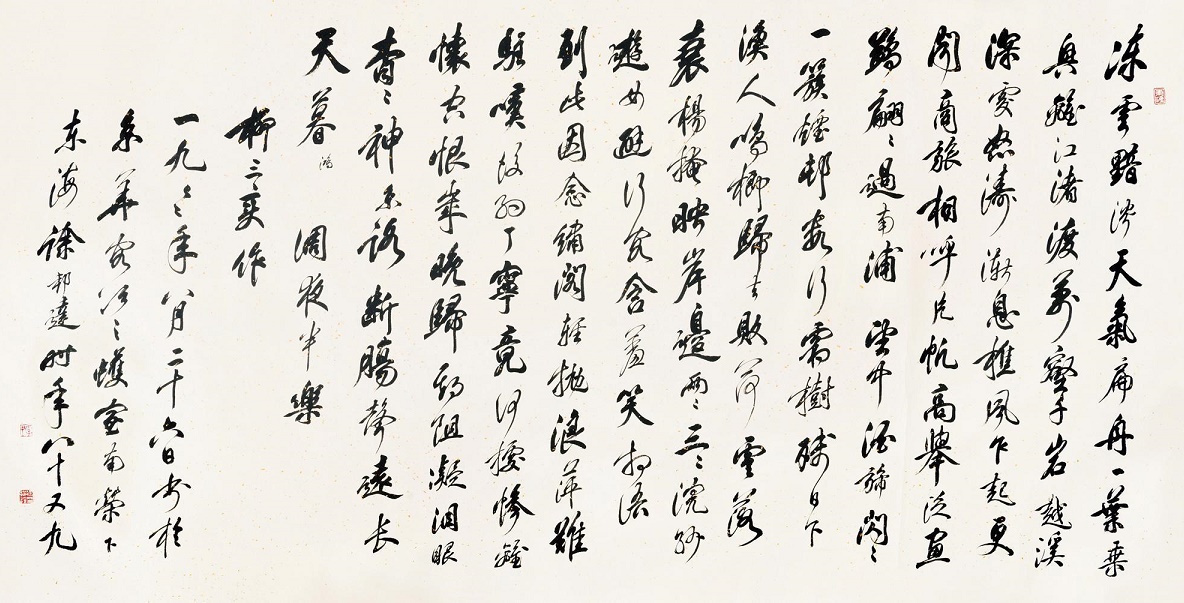 冻雲黯淡天氣扁舟一葉乘
興離江渚渡萬壑千岩越溪
深處怒濤漸息樵風乍起更
聞商旅相呼片帆高舉泛畫
鷁翩々過南浦 望中酒旆閃々
一簇煙邨數行霜樹殘日下
漁人鳴榔歸去敗荷零落
衰楊掩映岸邊兩々三々浣紗
遊女避行客含羞笑相語
到此因念繡閣輕拋浪萍難
駐嘆後約丁寧竟何據慘離
懷空恨歲晚歸期阻凝淚眼
杳々神京路斷腸聲遠長
天暮 鴻 調夜半樂
柳三變作
一九々々年八月二十六日書於
京華蠖室南榮下
东海徐邦達時年八十又九